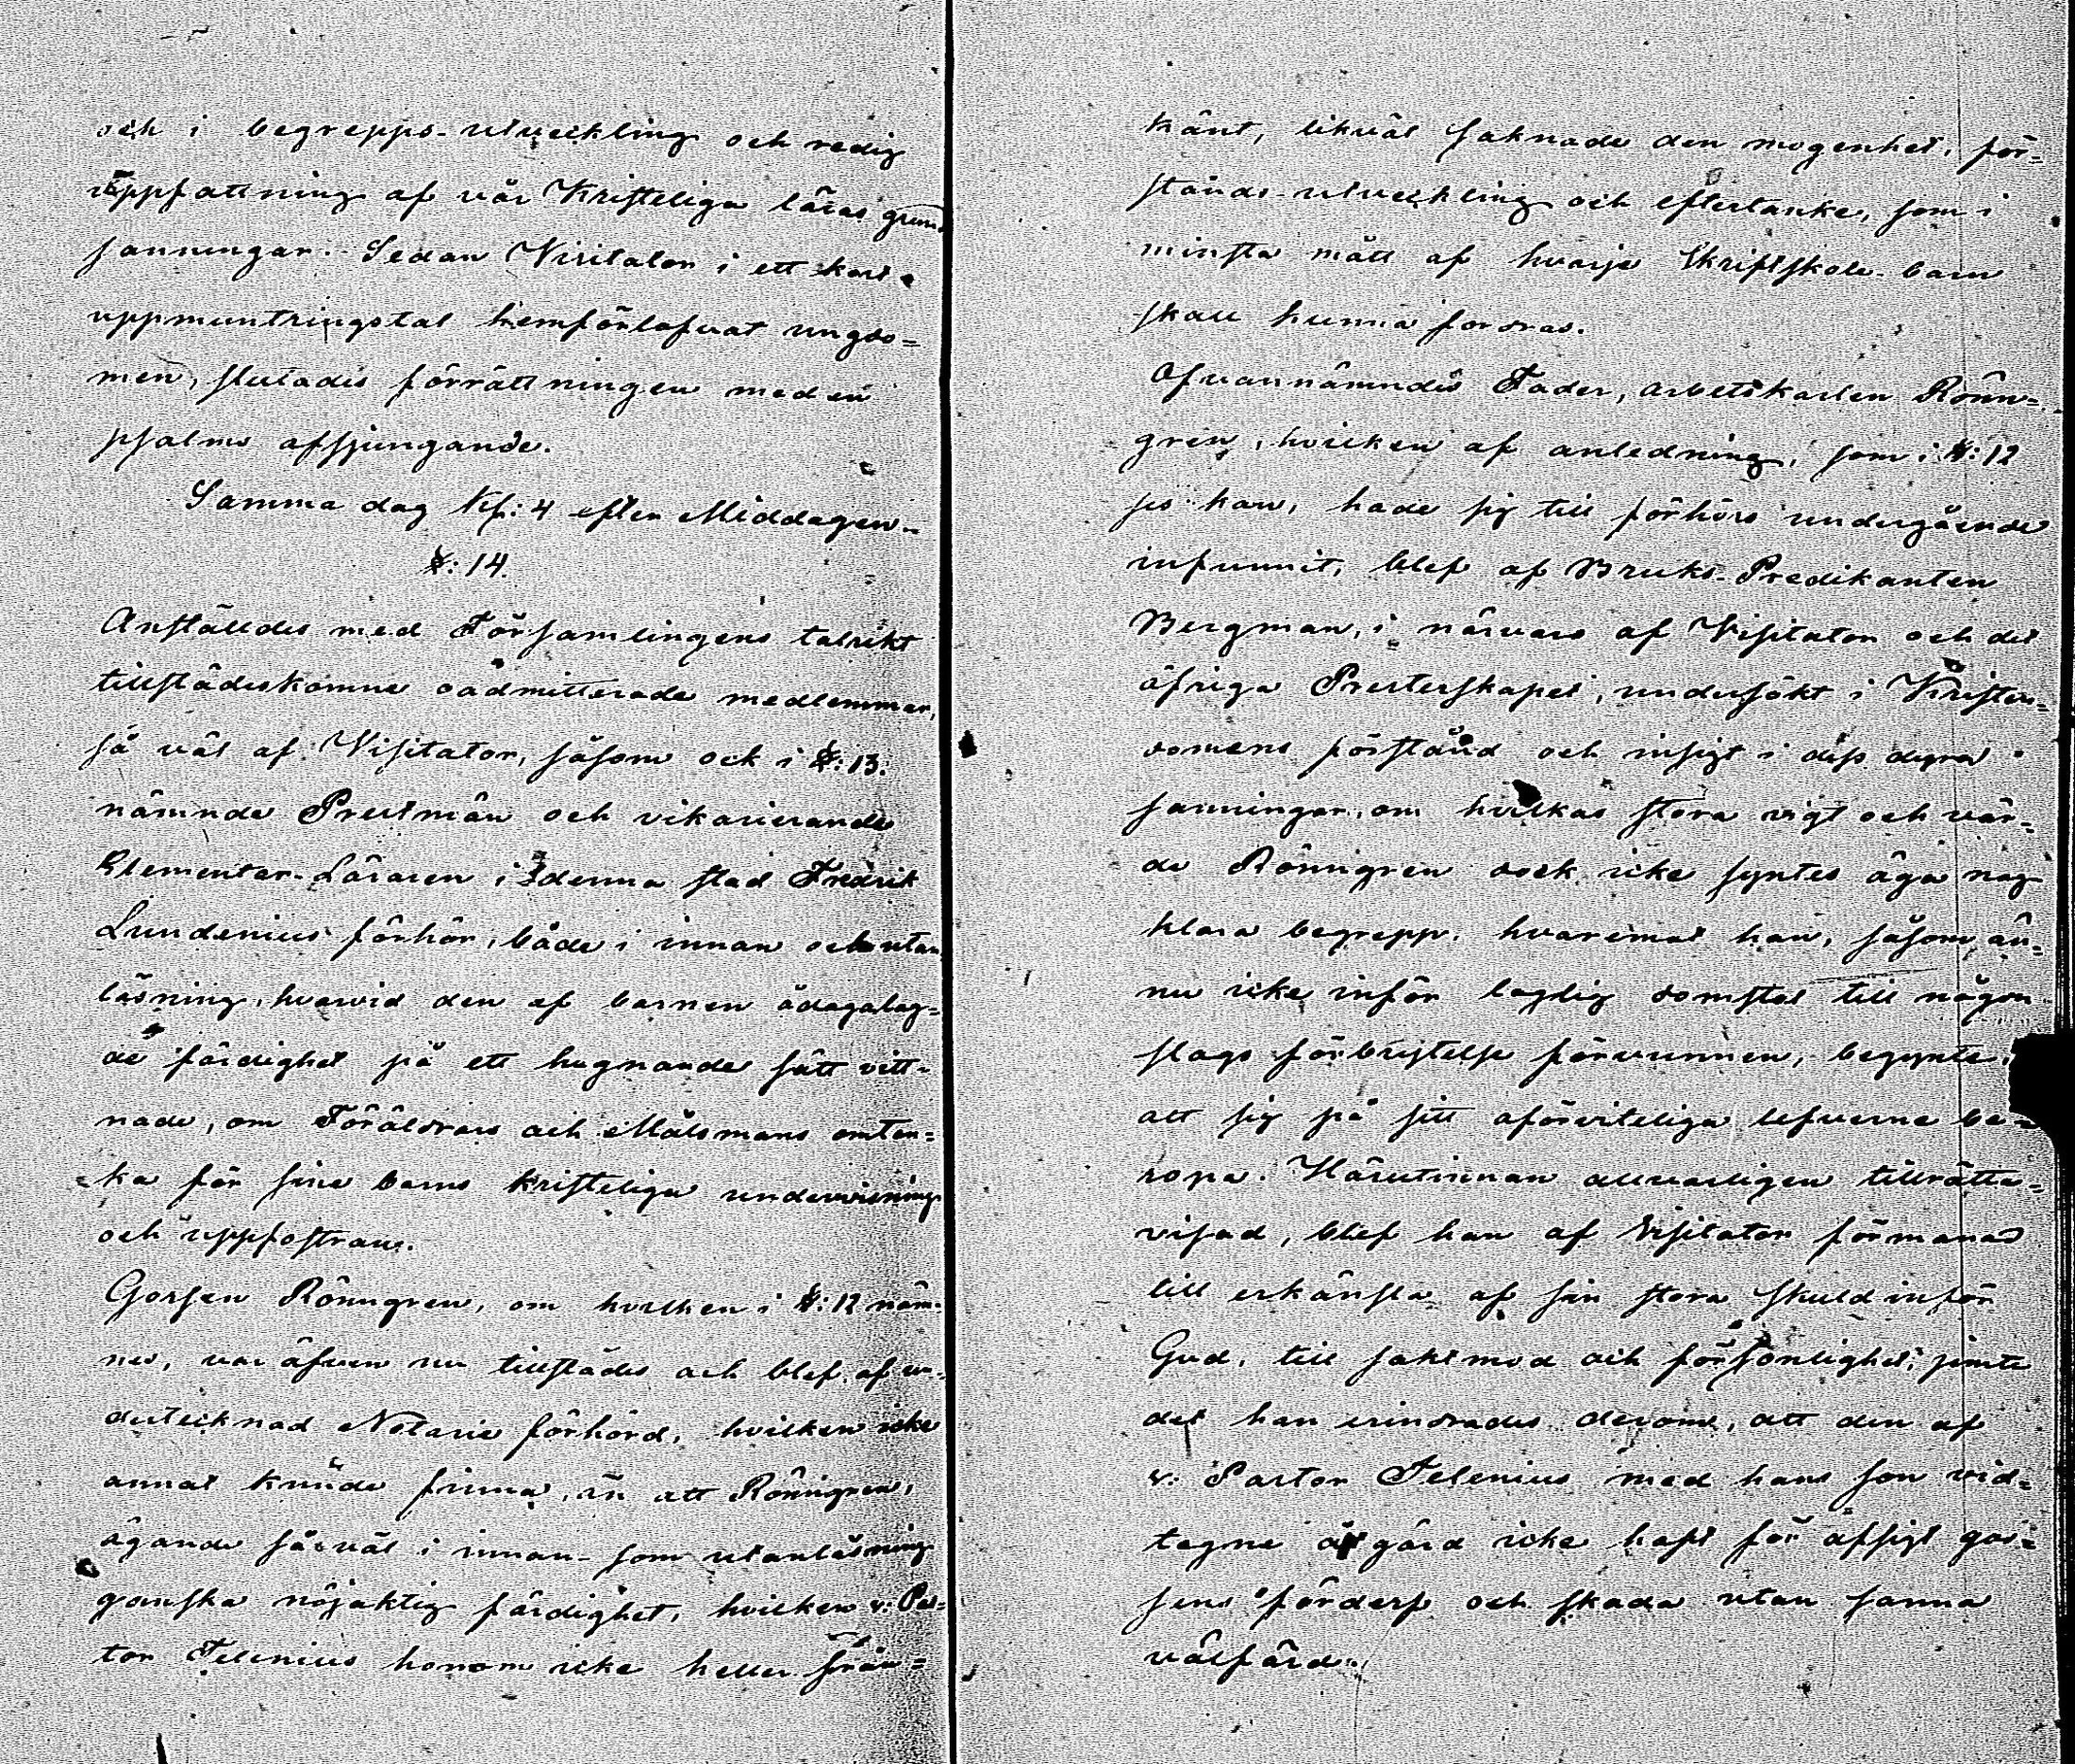 och i begrepps-utveckling och redig
uppfattning af vår Kristeliga läras grund
sanningar. Sedan Visitator i ett kort
uppmuntringstal hemförlofvat ungdo=
men, slutades förrättningen med en
psalms afsjungande.
Samma dag Kl: 4 efter Middagen.
§: 14.
Anställdes med Församlingens talrikt
tillstädeskomne oadmitterade medlemmar,
så väl af Visitator, såsom ock i §: 13.
nämnde Prestmän och vikarierande
Elementar-Läraren i denna stad Fredrik
Lundenius förhör, både i innan och utan
läsning, hvarvid den af barnen ådagalag=
de färdighet på ett hugnande sätt vitt-
nade, om Föräldrars och Målsmans omtan=
ka för sine barns kristeliga undervisning
och uppfostran.
Gossen Rönngren, om hvilken i §: 12 näm-
nes, var äfven nu tillstädes och blef af un-
dertecknad Notarie förhörd, hvilken icke
annat kunde finna, än att Rönngren,
ägande såväl i innan- som utanläsning
ganska nöjaktig färdighet, hvilken v: Pas=
tor Telenius honom icke heller från=
känt, likväl saknade den mogenhet, för=
stånds-utveckling och eftertanke, som i
minsta mått af hvarje Skriftskole-barn
skall kunna fordras.
Ofvannämndes Fader, arbetskarlen Rönn=
gren, hvilken af anledning, som i §: 12
ses kan, hade sig till förhörs undergående
infunnit, blef af Bruks-Predikanten
Bergman, i närvaro af Visitator och det
öfriga Presterskapet, undersökt i Kristen=
domens förstånd och insigt i dess dyra
sanningar, om hvilkas stora vigt och vär=
de Rönngren dock icke syntes äga nog
klara begrepp, hvaremot han, såsom än=
nu icke inför laglig domstol till någon
slags förbrytelse förvunnen, begynte
att sig på sitt oförviteliga lefverne be=
ropa. Härutinnan allvarligen tillrätta=
visad, blef han af Visitator förmanad
till erkänsla af sin stora skuld inför
Gud, till saktmod och försonlighet, jemte
det han erinrades derom, att den af
v: Pastor Telenius med hans son vid=
tagne åtgärd icke haft för afsigt gos=
sens förderf och skada utan sanna
välfärd.